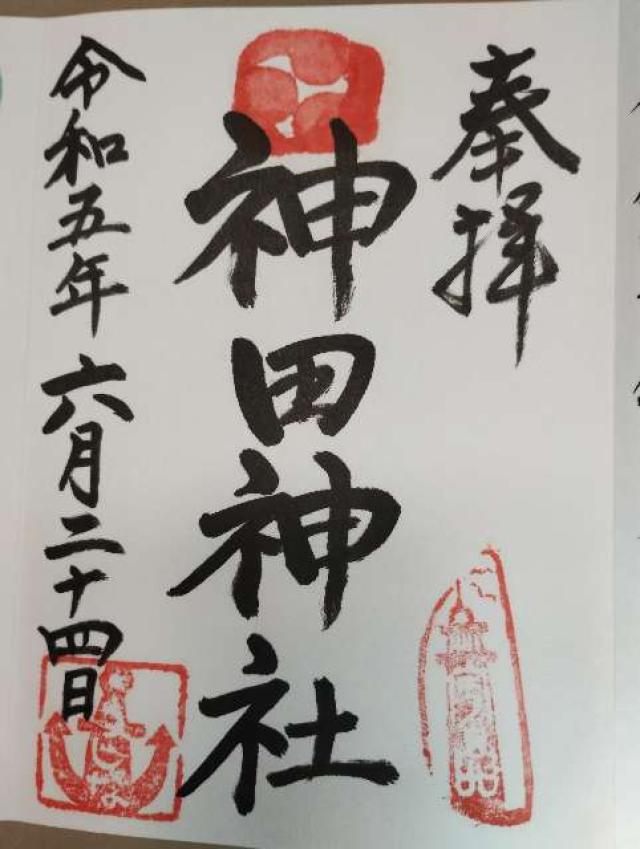 奉拝
神田神社
令和五年六月二十四日